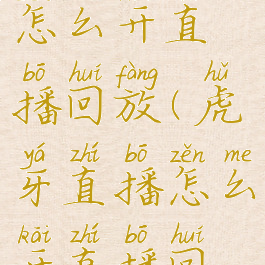 怎么开直
bō huí fàng hǔ
播回放(虎
yá zhí bō zěn me
牙直播怎么
kāi zhí bō huí
开直播回